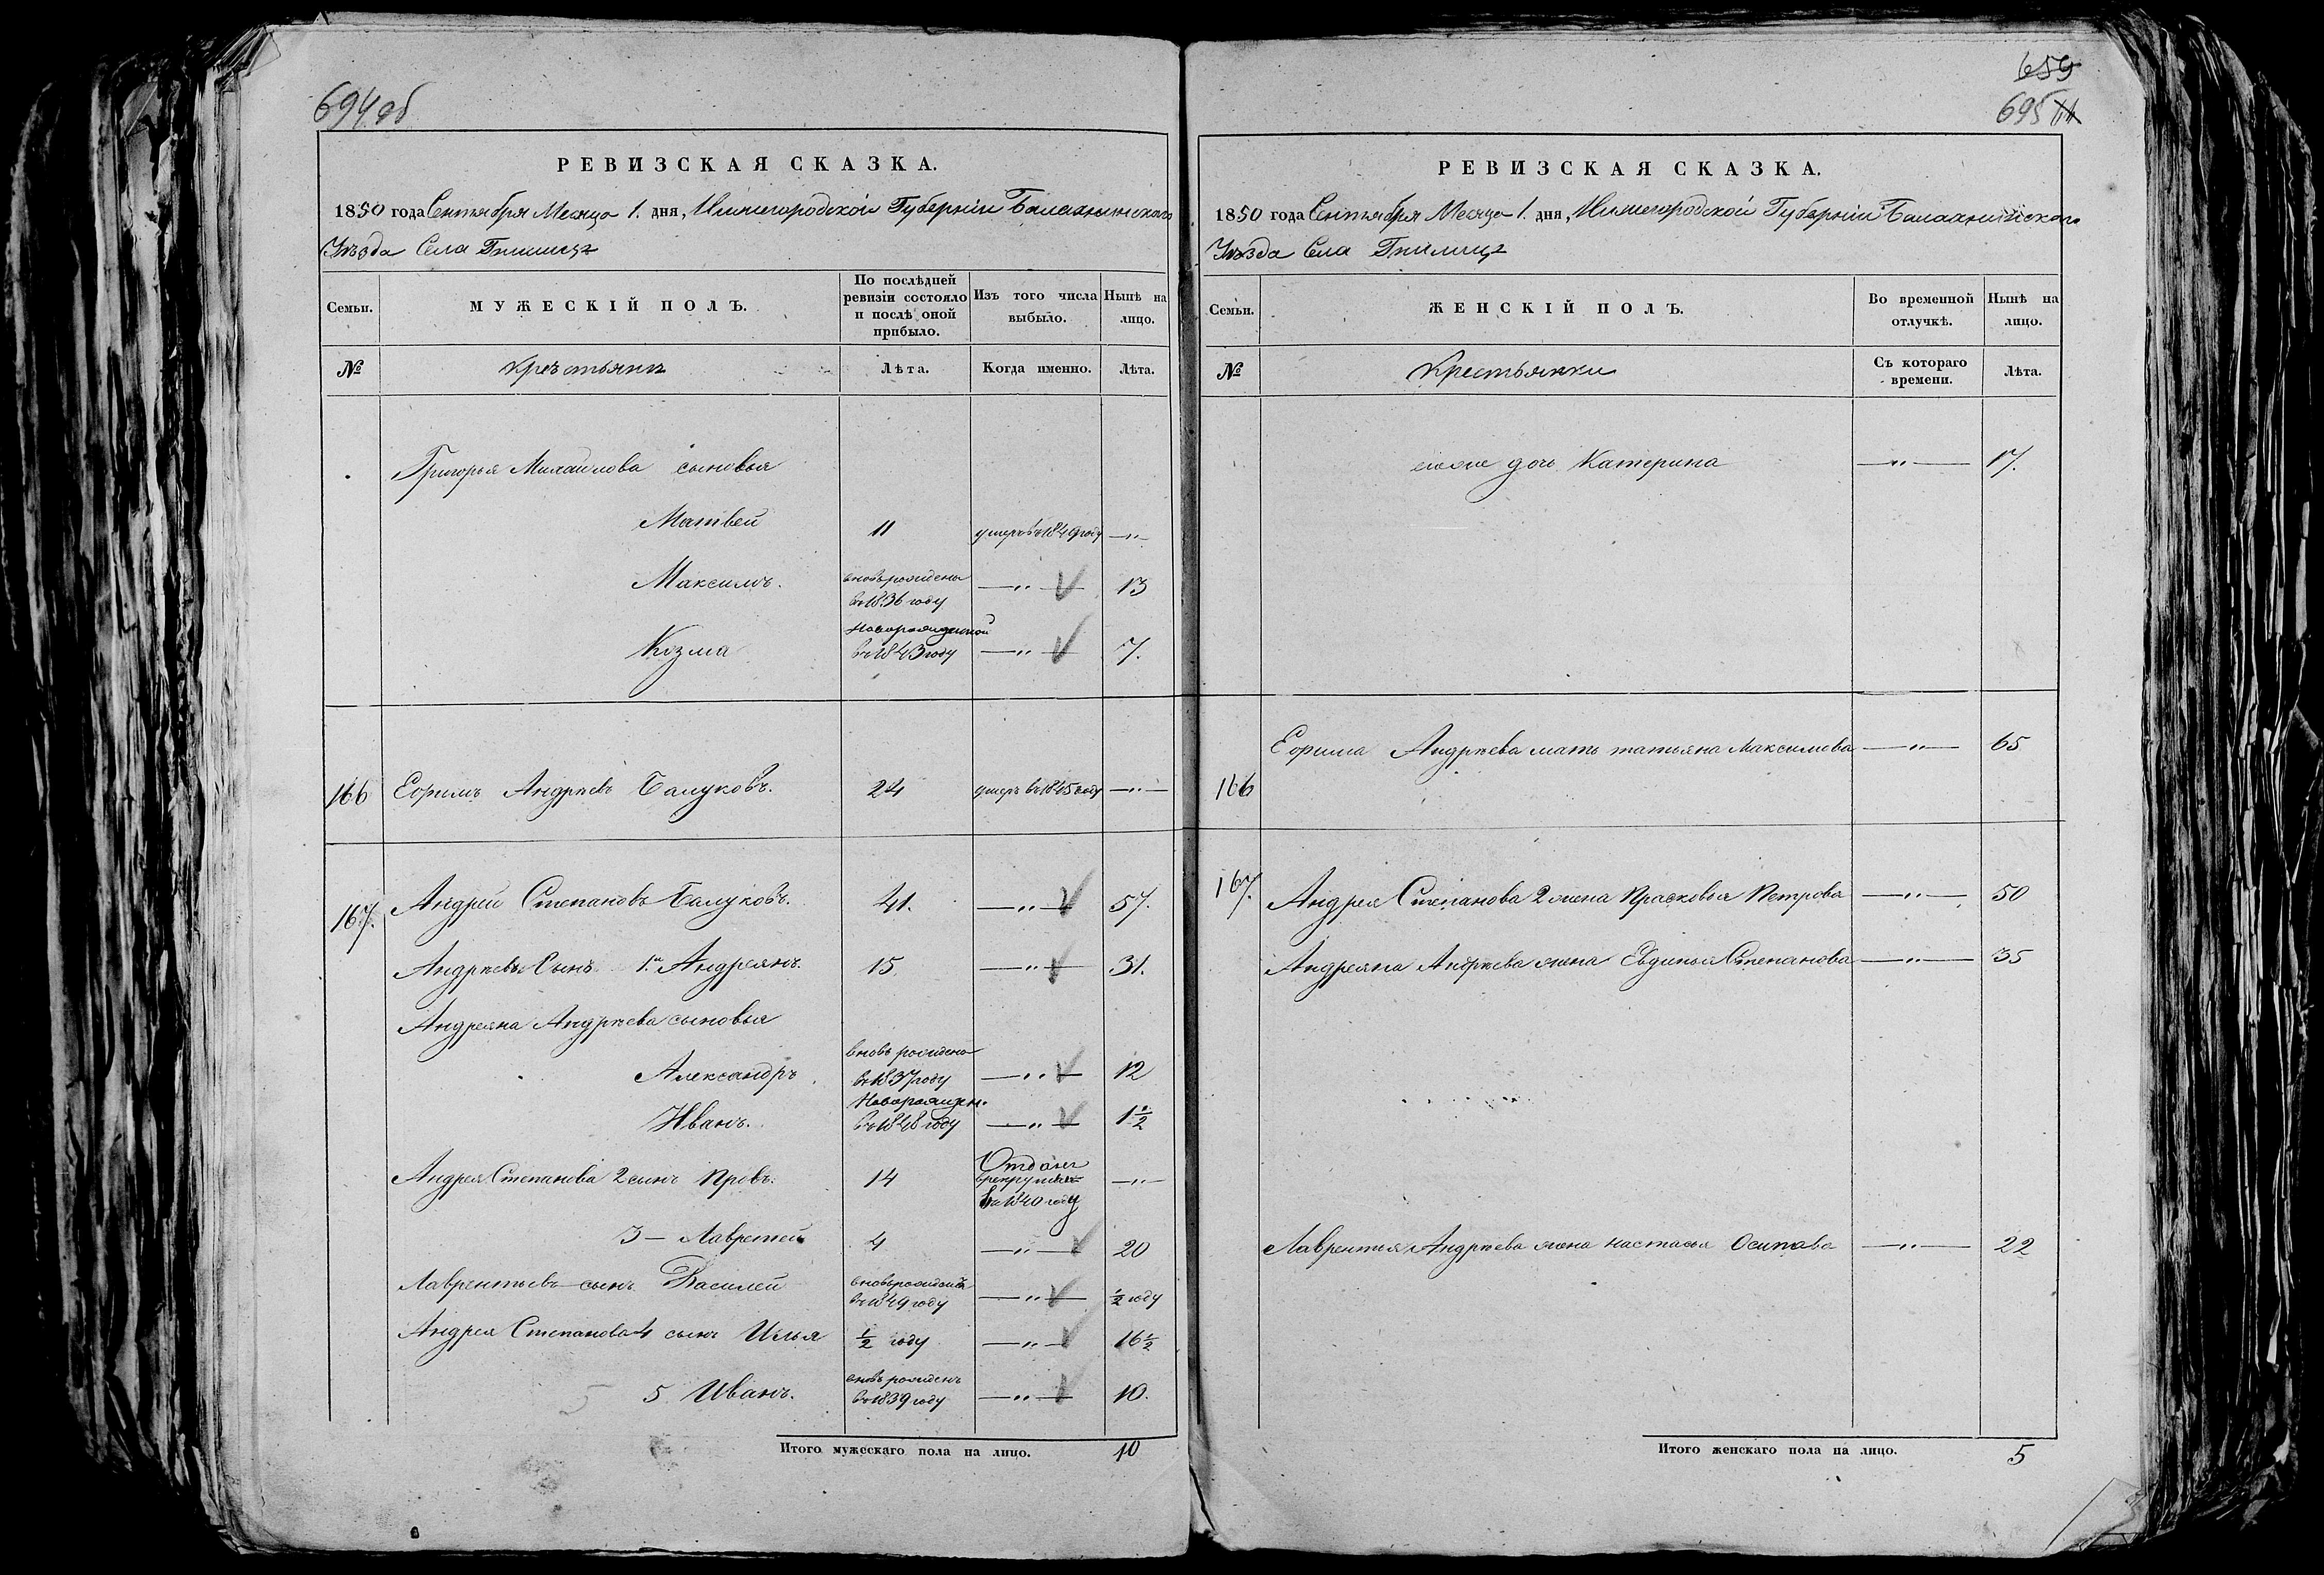 694 об
РЕВИЗСКАЯ СКАЗКА.
1850 года Сентября Месяца 1. дня, Нижегородской Губерніи Балахнинскаго
Уѣзда Села Гнилицъ
Семьи. МУЖЕСКІЙ ПОЛЪ. По послѣдней ревизіи состояло и послѣ оной прибыло. Изъ того числа выбыло. Нынѣ на лицо.
№ Крестьянъ Лѣта. Когда именно. Лѣта.
Григорья Михайлова сыновья
Матвей 11 умеръ въ 1849 году —"—
Максимъ. вновь рожденъ въ 1836 году —"— 13
Козма Новорожденной въ 1843 году —"— 7.
166 Ефимъ Андреевъ Балуковъ. 24 умеръ въ 1845 году —"—
167. Андрей Степановъ Балуковъ. 41. —"— 57.
Андреевъ Сынъ 1й Андреянъ. 15 —"— 31.
Андреяна Андреева сыновья
Александръ вновь рожденъ въ 1837 году —"— 12
Иванъ. Новорожден. въ 1848 году —"— 1 1/2
Андрея Степанова 2 сынъ Провъ. 14 Отданъ в рекруты въ 1840 году —"—
3 — Лаврентей 4 —"— 20
Лаврентьевъ сынъ Василей вновь рожденъ въ 1849 году —"— 1/2 году
Андрея Степанова 4 сынъ Илья 1/2 году —"— 16 1/2
5 5 Иванъ. вновь рожденъ въ 1839 году —"— 10.
Итого мужескаго пола на лицо. 10
659
695
РЕВИЗСКАЯ СКАЗКА.
1850 года Сентября Месяца 1. дня, Нижегородской Губерніи Балахнинскаго
Уѣзда Села Гнилицъ
Семьи. ЖЕНСКІЙ ПОЛЪ. Во временной отлучкѣ. Нынѣ на лицо.
№ Крестьянки Съ котораго времени. Лѣта.
дочь Катерина —"— 17.
166 Ефима Андреева мать татьяна Максимова —"— 65
167. Андрея Степанова 2 жена Прасковья Петрова —"— 50
Андреяна Андреева жена Евдинья Степанова —"— 35
Лаврентья Андреева жена настасья Осипова —"— 22
Итого женскаго пола на лицо. 5